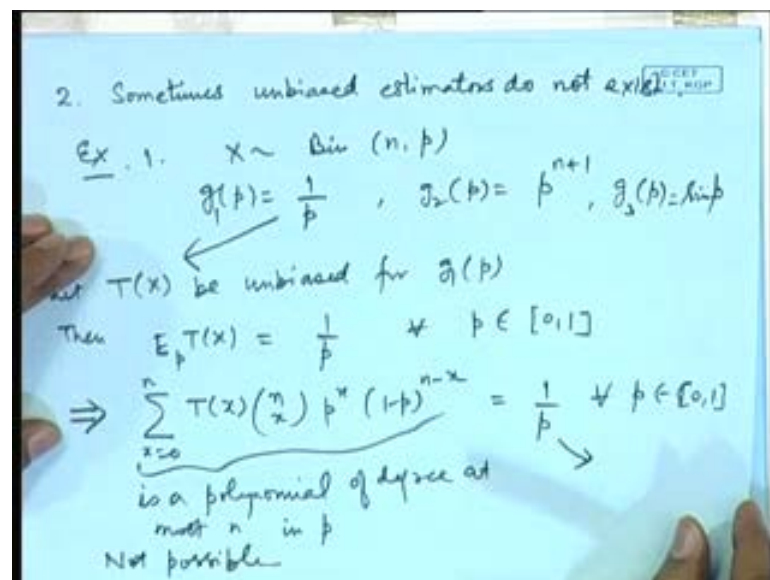 2. Sometimes unbiased estimators do not exist.
Ex. 1. X ~ Bin (n, p)
g₁(p) = 1/p , g₂(p) = p^{n+1}, g₃(p) = sin p
Let T(X) be unbiased for g₁(p)
Then E_p T(X) = 1/p ∀ p ∈ [0,1]
⇒ ∑_{x=0}^{n} T(x) (n x) p^x (1-p)^{n-x} = 1/p ∀ p ∈ [0,1]
is a polynomial of degree at
most n in p
Not possible